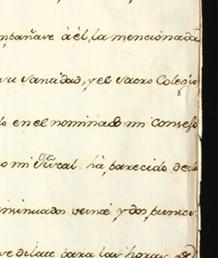 mpañave à él, la mencionada
su Sanidad, y el Sacro Colegio
do en el nominado mi Consejo
o mi Fiscal: ha parecido de
insinuados veinte y dos, punto
se dilate para las horas